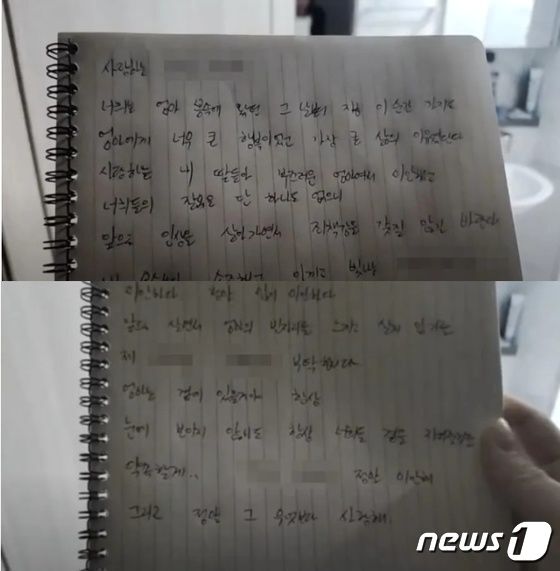 사랑하는
너희는 엄마 뱃속에 왔던 그 날부터 지금 이 순간 까지도
엄마에게 너무 큰 행복이었고 가장 큰 삶의 이유였단다
사랑하는 내 딸들아 부끄러운 엄마여서 미안하고
너희들의 잘못은 단 하나도 없으니
앞으로 인생을 살아가면서 죄책감을 갖질 않길 바란다
소중하고 아끼고 빛나
미안하다 엄마 미안하다
앞으로 살면서 엄마의 빈자리를 느끼고 살지 않기를
제 부탁한다
엄마는 곁에 있을거야 항상
눈에 보이지 않아도 항상 너희들 곁을
약속할게.. 정말 미안해
그리고 정말 그 무엇보다 사랑해.
news1